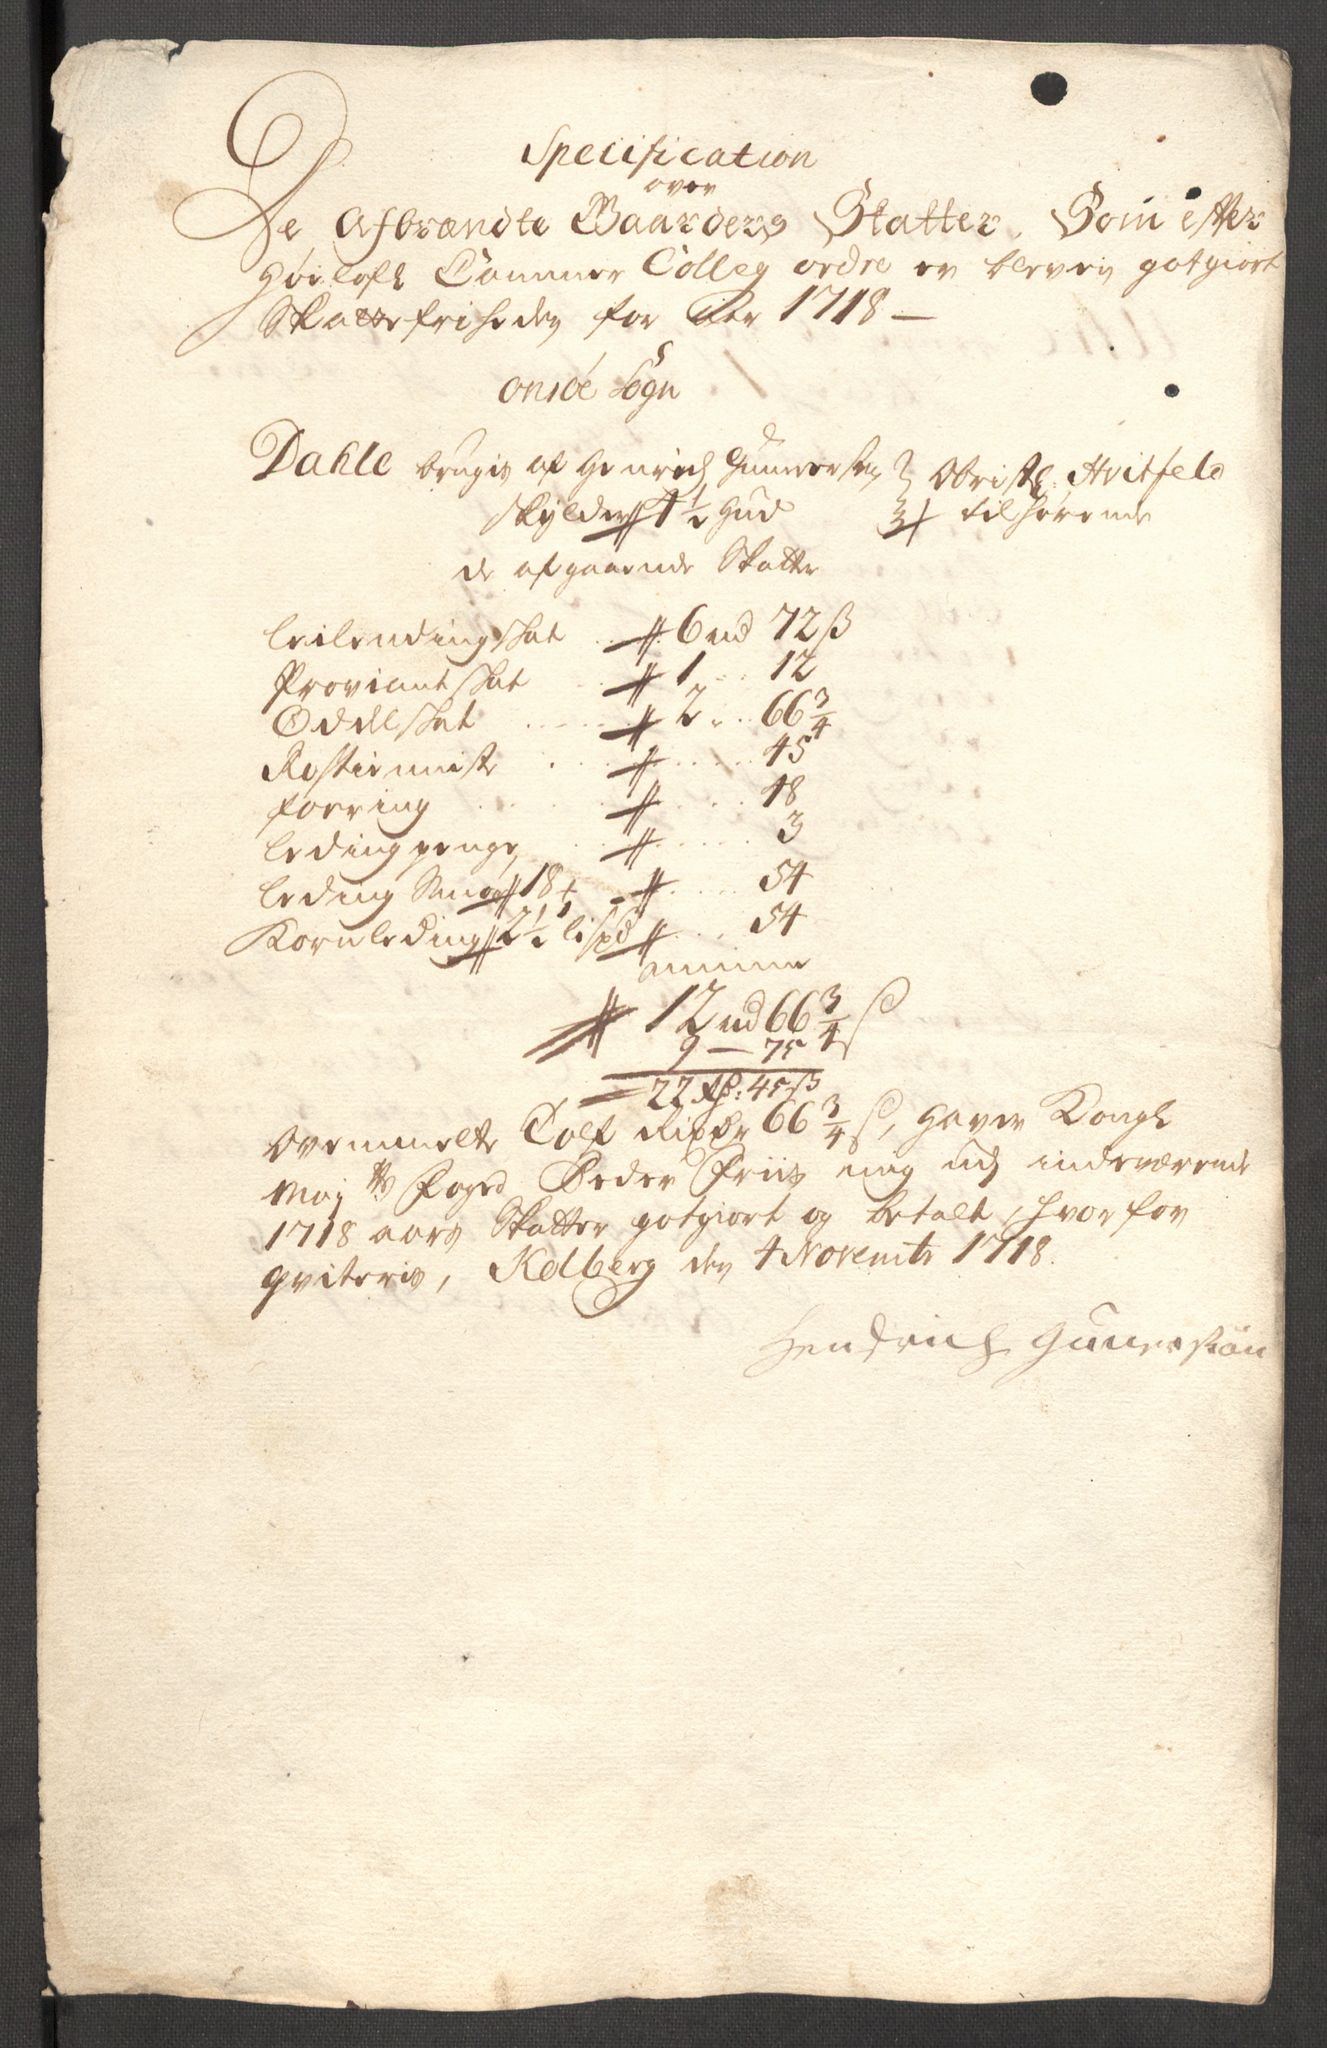 Specification
over
De Afbrændte Gaarders Skatter, Som efter
Høylofl Cammer Colleg ordre er bleven gotgiort
Skattefriheden for Aar 1718 –
Onsøe Sogn
Dahle brugis af Henrich Gunnersen } Obristl: Hvitfeld
skylder 4 1/2 Hud } tilhørende
de afgaaende Skatter
leilendingskat 6 rd 72 ß
Proviantskat 1 .. 12
Oddelskat 2 .. 66 3/4
Rostienniste 45
foering 18
leding penge 3
leding Smør 18 54
Kornleding 2 1/2 lispd 54
Summa
12 rd 66 3/4 ß
9 — 75
22 Rd: 45 ß
Ovenmelte Tolf Rixdr 66 3/4 ß, haver Kongl
Maj ts Foged Peder Friis mig udj indeværende
1718 aars Skatter gotgiort og betalt, hvorfor
qviteris, Kølberg den 4 Novembr 1718.
Hendrich Gunersøn